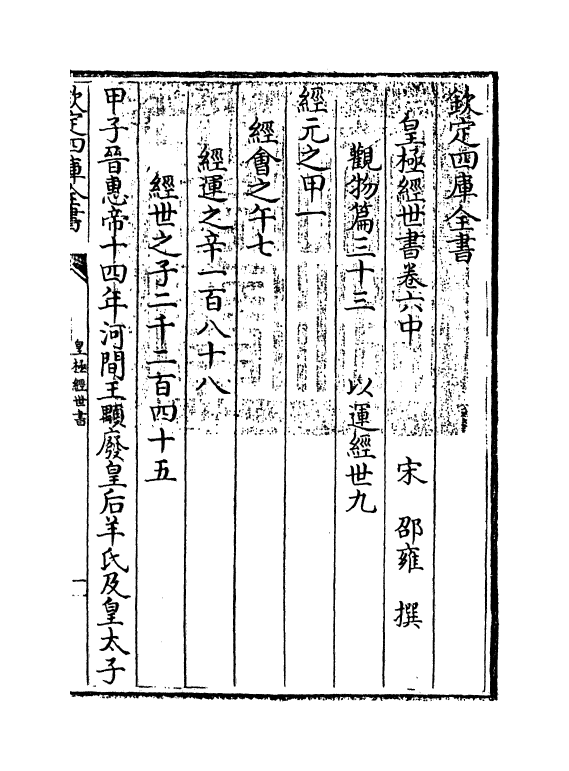 欽定四庫全書
皇極經世書卷六中
宋 邵雍 撰
觀物篇三十三 以運經世九
經元之甲一
經會之午七
經運之辛一百八十八
經世之子二千二百四十五
甲子晉惠帝十四年河間王顒廢皇后羊氏及皇太子
欽定四庫全書
皇極經世書
一